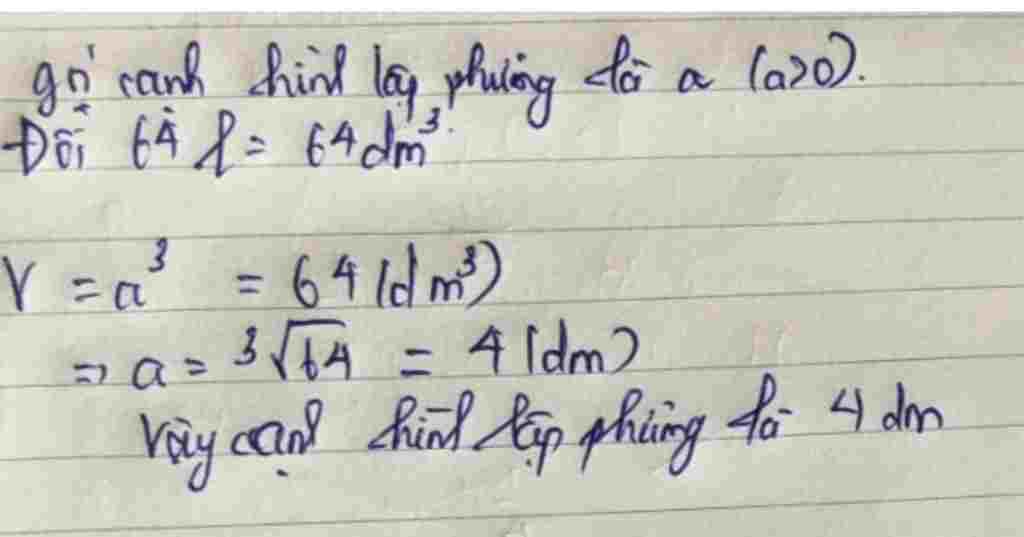 gọi cạnh hình lập phương là a (a>0).
Đổi 64 l = 64 dm³.
V = a³ = 64 (dm³)
⇒ a = ³√64 = 4 (dm)
Vậy cạnh hình lập phương là 4 dm